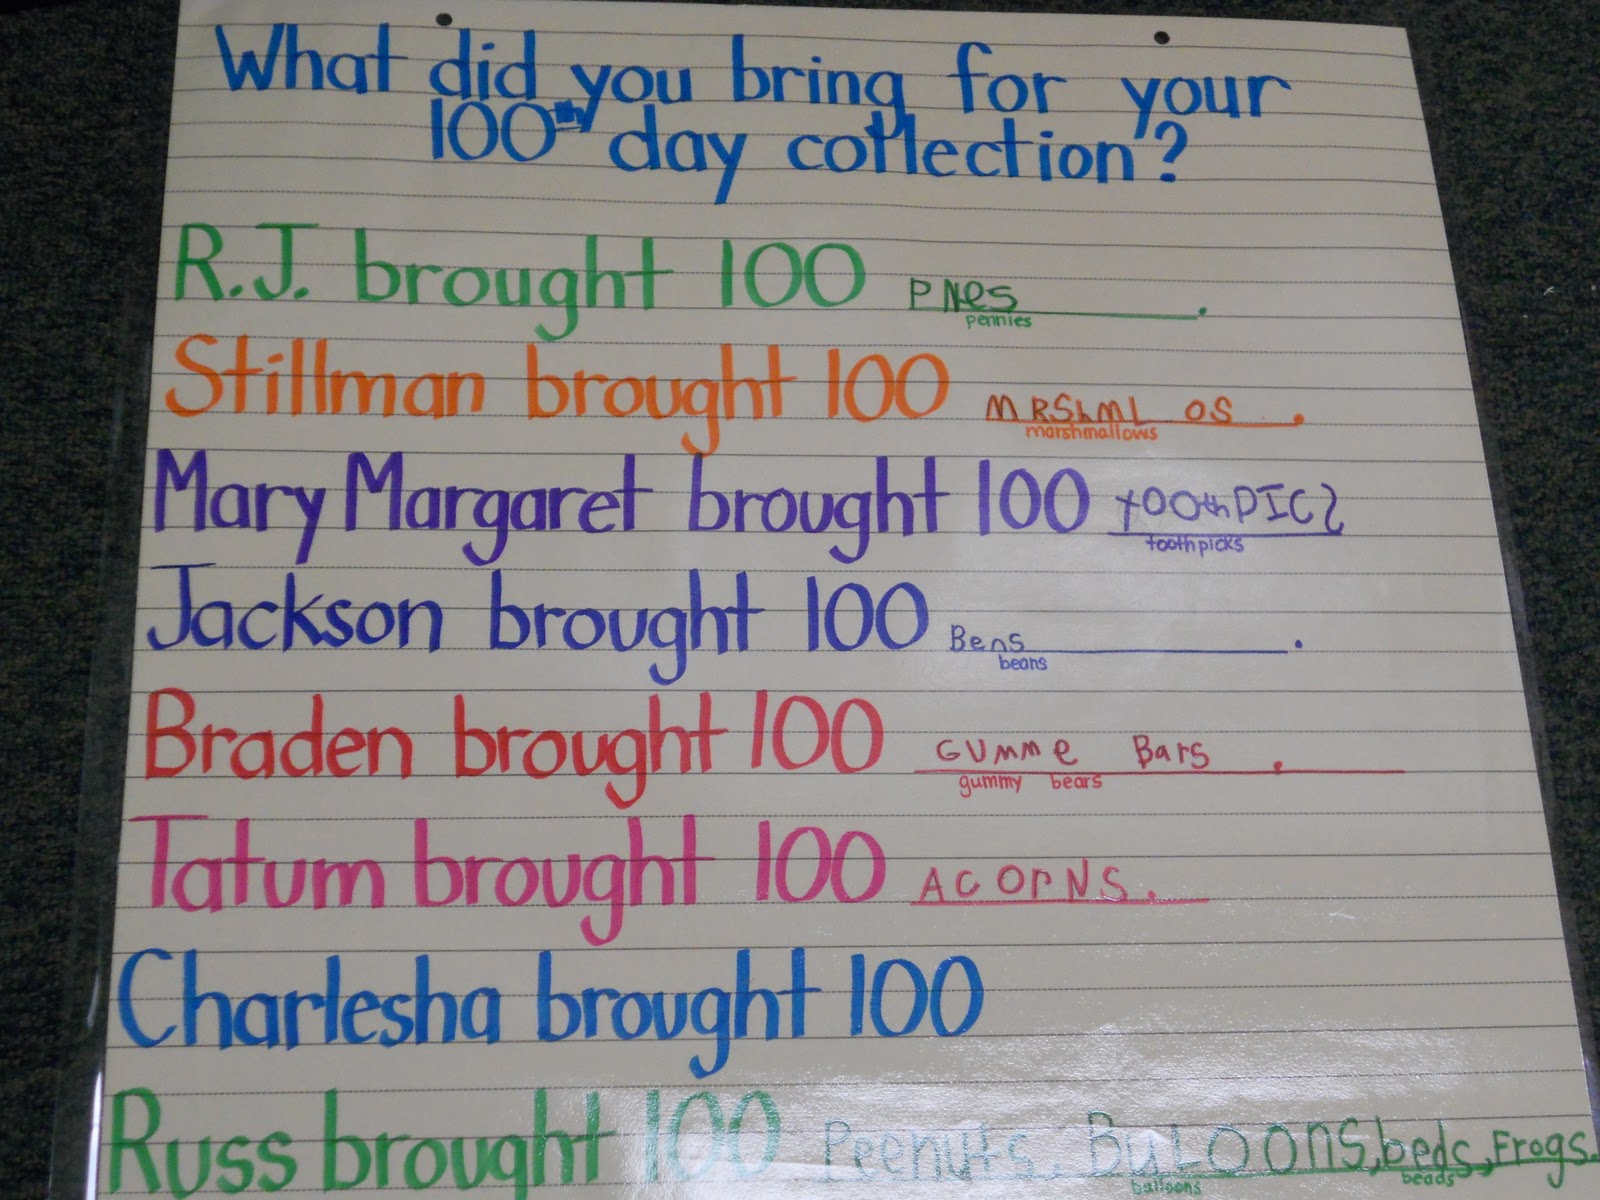 What did you bring for your
100th day collection?
R.J. brought 100 PNes.
pennies
Stillman brought 100 MRShML OS.
marshmallows
Mary Margaret brought 100 toothPICS
toothpicks
Jackson brought 100 Bens.
beans
Braden brought 100 GUMMe Bars.
gummy bears
Tatum brought 100 ACOrNS.
Charlesha brought 100
Russ brought 100 Peenuts, BaLOOns, beds, Frogs.
balloons beads